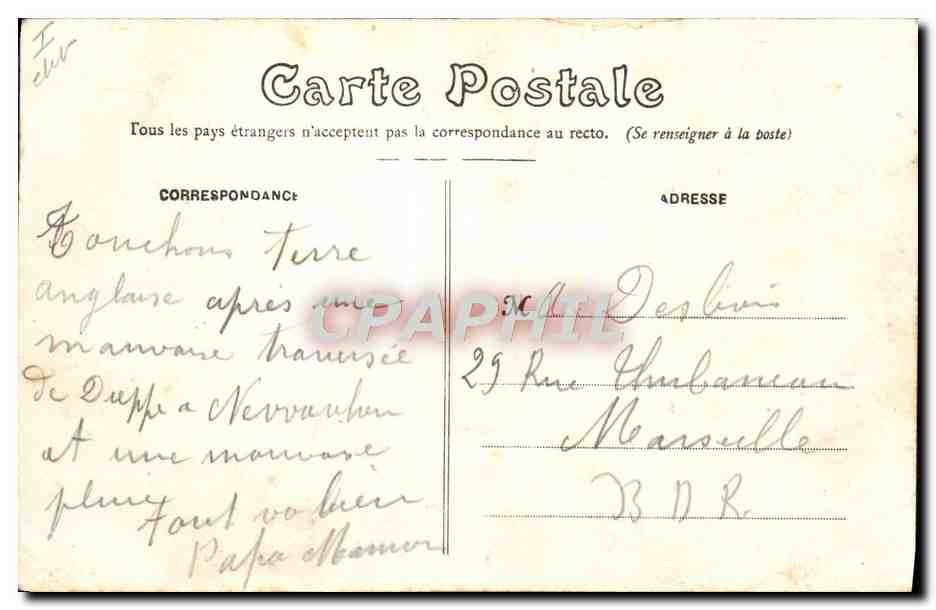 Carte Postale
Tous les pays étrangers n'acceptent pas la correspondance au recto. (Se renseigner à la poste)
CORRESPONDANCE
Touchons terre
anglaise après une
mauvaise traversée
de Dieppe a Newaulon
et une mauvaise
pluie
Tout va bien
Papa Maman
ADRESSE
M Desbois
29 Rue
Marseille
B D R
CPAPHIL